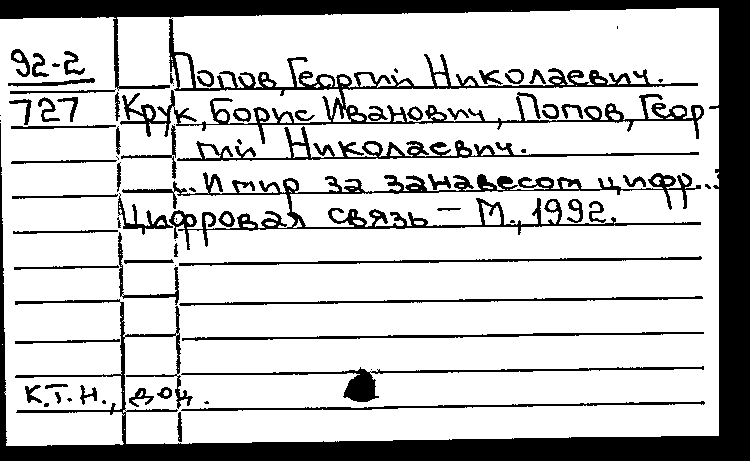 92-2 Попов, Георгий Николаевич.
727 Крук, Борис Иванович, Попов, Геор-
гий Николаевич.
...И мир за занавесом цифр...:
Цифровая связь — М., 1992.
к.т.н., доц.